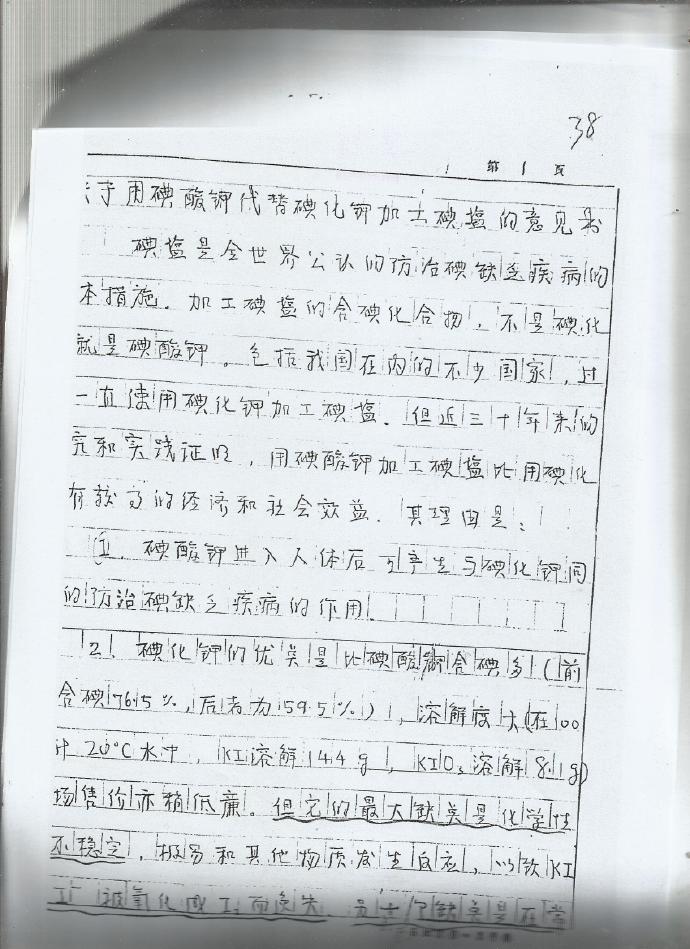 38
第1页
关于用碘酸钾代替碘化钾加工碘盐的意见书
碘盐是全世界公认的防治碘缺乏疾病的
本措施。加工碘盐的含碘化合物，不是碘化
就是碘酸钾。包括我国在内的不少国家，过
一直使用碘化钾加工碘盐。但近三十年来的
究和实践证明，用碘酸钾加工碘盐比用碘化
有较高的经济和社会效益。其理由是：
1、碘酸钾进入人体后可产生与碘化钾同
的防治碘缺乏疾病的作用。
2、碘化钾的优点是比碘酸钾含碘多（前
含碘76.5%，后者为59.5%），溶解度大(在100
20℃水中，KI溶解144g，KIO₃溶解8.1g)
场售价亦稍低廉。但它的最大缺点是化学性
不稳定，极易和其他物质发生反应，以致KI
I⁻被氧化成I₂而丧失。缺点是在常